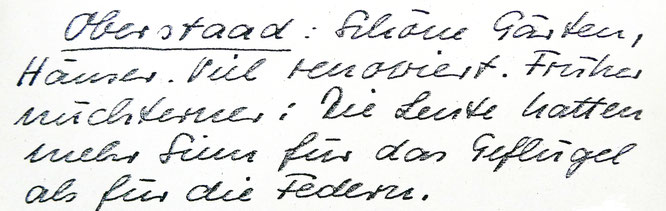 Oberstaad: Schöne Gärten,
Häuser. Viel renoviert. Früher
nüchterner: Die Leute hatten
mehr Sinn für das Geflügel
als für die Federn.